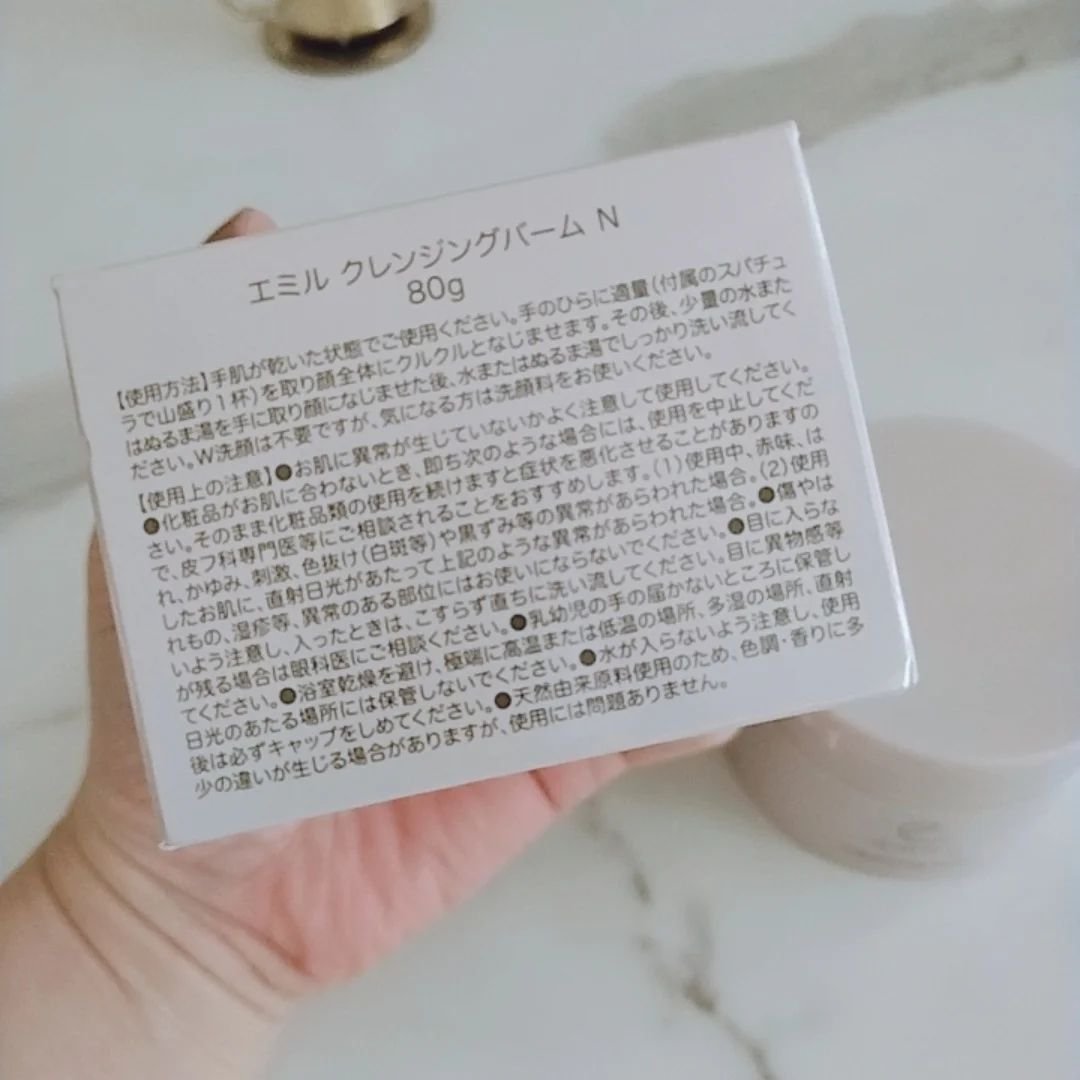 エミル クレンジングバーム N
80g
【使用方法】手肌が乾いた状態でご使用ください。手のひらに適量(付属のスパチュ
ラで山盛り1杯)を取り顔全体にクルクルとなじませます。その後、少量の水また
はぬるま湯を手に取り顔になじませた後、水またはぬるま湯でしっかり洗い流してく
ださい。W洗顔は不要ですが、気になる方は洗顔料をお使いください。
【使用上の注意】●お肌に異常が生じていないかよく注意して使用してください。
●化粧品がお肌に合わないとき、即ち次のような場合には、使用を中止してくだ
さい。そのまま化粧品類の使用を続けますと症状を悪化させることがありますの
で、皮フ科専門医等にご相談されることをおすすめします。(1)使用中、赤味、は
れ、かゆみ、刺激、色抜け(白斑等)や黒ずみ等の異常があらわれた場合。(2)使用
したお肌に、直射日光があたって上記のような異常があらわれた場合。●傷やは
れもの、湿疹等、異常のある部位にはお使いにならないでください。●目に入らな
いよう注意し、入ったときは、こすらず直ちに洗い流してください。目に異物感等
が残る場合は眼科医にご相談ください。●乳幼児の手の届かないところに保管し
てください。●浴室乾燥を避け、極端に高温または低温の場所、多湿の場所、直射
日光のあたる場所には保管しないでください。●水が入らないよう注意し、使用
後は必ずキャップをしめてください。●天然由来原料使用のため、色調・香りに多
少の違いが生じる場合がありますが、使用には問題ありません。